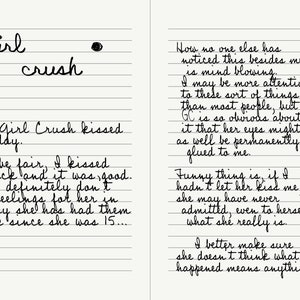 irl
crush
Girl Crush kissed
dy.
be fair, I kissed
ck and it was good.
definitely don't
eelings for her in
y she has had them
since she was 15...
How no one else has
noticed this besides me
is mind blowing.
I may be more attentiv
to these sort of things
than most people, but
GC is so obvious about
it that her eyes might
as well be permanently
glued to me.
Funny thing is, if I
hadn't let her kiss me
she may have never
admitted, even to hersel
what she really is.
I better make sure
she doesn't think what
happened means anythi